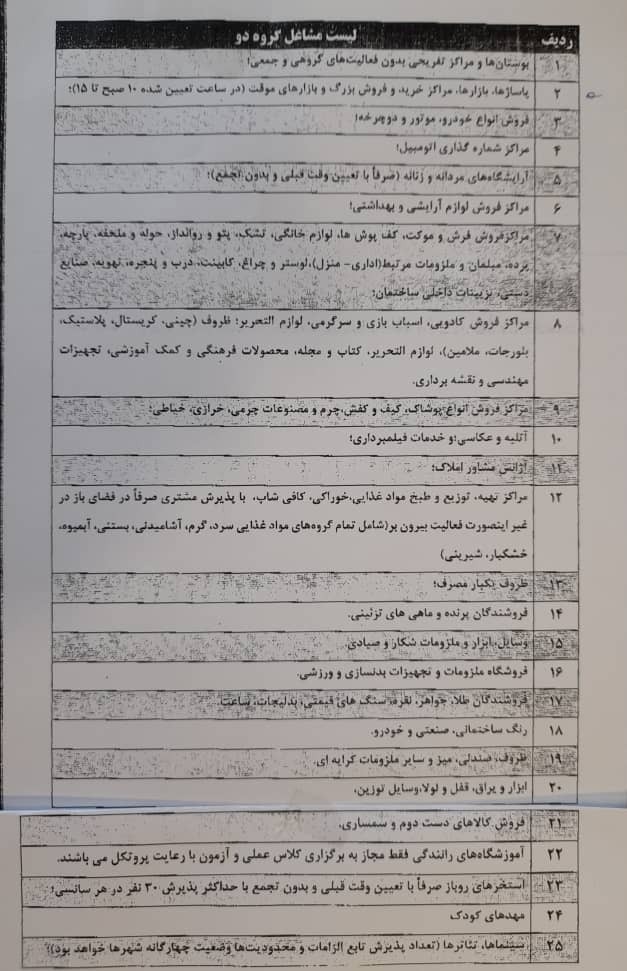 ردیف لیست مشاغل گروه دو
۱ بوستان‌ها و مراکز تفریحی بدون فعالیت‌های گروهی و جمعی؛
۲ پاساژها، بازارها، مراکز خرید و فروش بزرگ و بازارهای موقت (در ساعت تعیین شده ۱۰ صبح تا ۱۵)؛
۳ فروش انواع خودرو، موتور و دوچرخه؛
۴ مراکز شماره گذاری اتومبیل؛
۵ آرایشگاه‌های مردانه و زنانه (صرفاً با تعیین وقت قبلی و بدون تجمع)؛
۶ مراکز فروش لوازم آرایشی و بهداشتی؛
۷ مراکزفروش فرش و موکت، کف پوش ها، لوازم خانگی، تشک، پتو و روانداز، حوله و ملحفه، پارچه،
پرده، مبلمان و ملزومات مرتبط(اداری- منزل)،لوستر و چراغ، کابینت، درب و پنجره، تهویه، صنایع
دستی، تزیینات داخلی ساختمان؛
۸ مراکز فروش کادویی، اسباب بازی و سرگرمی، لوازم التحریر؛ ظروف (چینی، کریستال، پلاستیک،
بلورجات، ملامین)، لوازم التحریر، کتاب و مجله، محصولات فرهنگی و کمک آموزشی، تجهیزات
مهندسی و نقشه برداری.
۹ مراکز فروش انواع پوشاک، کیف و کفش،چرم و مصنوعات چرمی، خرازی، خیاطی؛
۱۰ آتلیه و عکاسی؛و خدمات فیلمبرداری؛
۱۱ آژانس مشاور املاک؛
۱۲ مراکز تهیه، توزیع و طبخ مواد غذایی،خوراکی، کافی شاپ، با پذیرش مشتری صرفاً در فضای باز در
غیر اینصورت فعالیت بیرون بر(شامل تمام گروه‌های مواد غذایی سرد، گرم، آشامیدنی، بستنی، آبمیوه،
خشکبار، شیرینی)
۱۳ ظروف یکبار مصرف؛
۱۴ فروشندگان پرنده و ماهی های تزئینی.
۱۵ وسایل، ابزار و ملزومات شکار و صیادی.
۱۶ فروشگاه ملزومات و تجهیزات بدنسازی و ورزشی.
۱۷ فروشندگان طلا، جواهر، نقره، سنگ های قیمتی، بدلیجات، ساعت.
۱۸ رنگ ساختمانی، صنعتی و خودرو.
۱۹ ظروف، صندلی، میز و سایر ملزومات کرایه ای.
۲۰ ابزار و یراق، قفل و لولا،وسایل توزین.
۲۱ فروش کالاهای دست دوم و سمساری.
۲۲ آموزشگاه‌های رانندگی فقط مجاز به برگزاری کلاس عملی و آزمون با رعایت پروتکل می باشند.
۲۳ استخرهای روباز صرفاً با تعیین وقت قبلی و بدون تجمع با حداکثر پذیرش ۳۰ نفر در هر سانس؛
۲۴ مهدهای کودک
۲۵ سینماها، تئاترها (تعداد پذیرش تابع الزامات و محدودیت‌ها وضعیت چهارگانه شهرها خواهد بود)؛